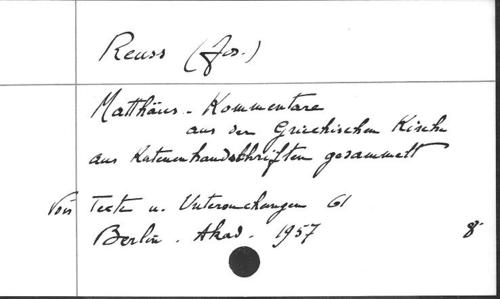 Reuss (Jos.)
Matthäus-Kommentare
aus der Griechischen Kirche
aus Katenenhandschriften gesammelt
Voir Texte u. Untersuchungen 61
Berlin. Akad. 1957 8°